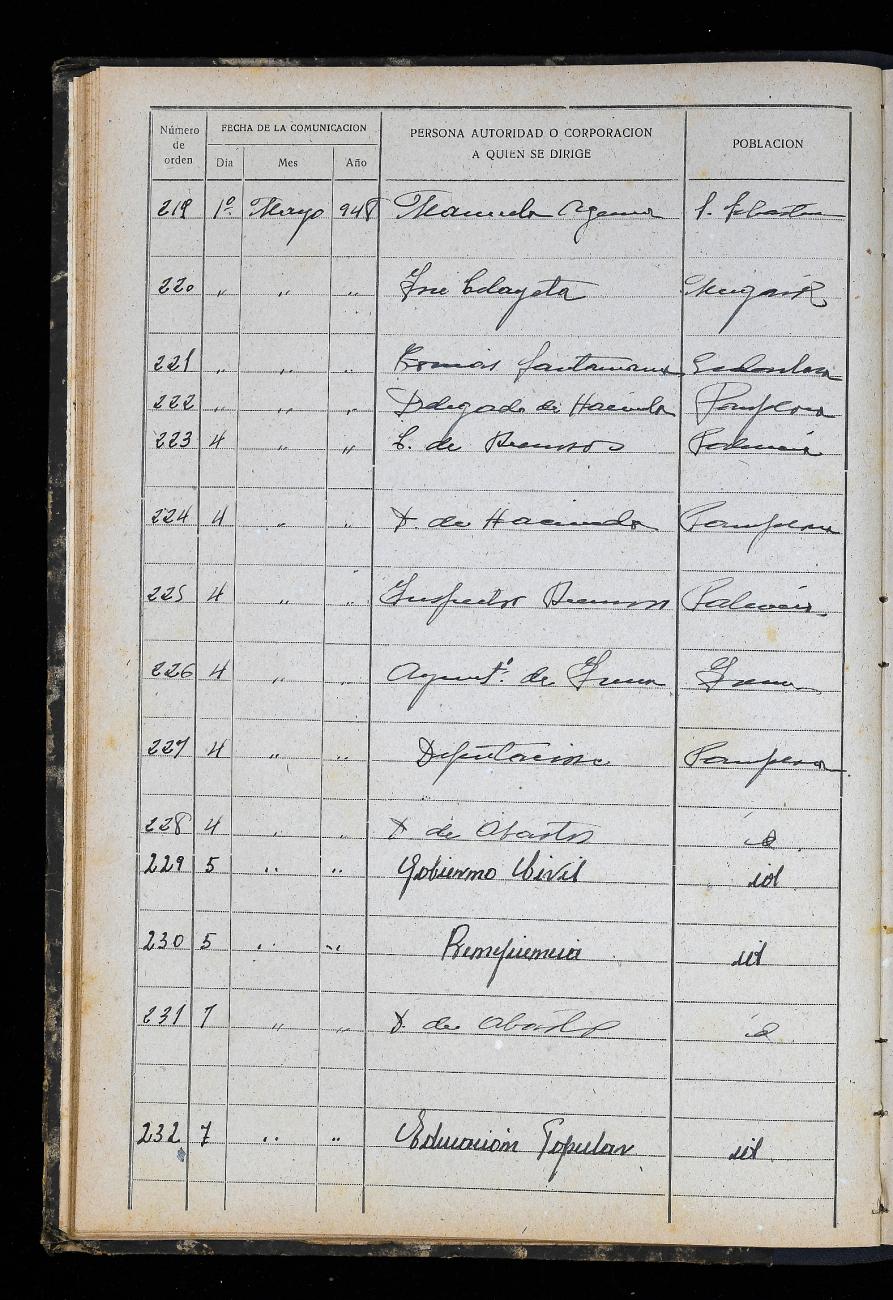 Número de orden FECHA DE LA COMUNICACION PERSONA AUTORIDAD O CORPORACION A QUIEN SE DIRIGE POBLACION
Día Mes Año
219 1º Mayo 948 Manuela S. Sebastian
220 " " " José Celayeta Mugairi
221 " " " Tomás Santamaria
222 " " " Delegado de Hacienda Pamplona
223 4 " " de Palencia
224 4 " " D. de Hacienda Pamplona
225 4 " " Inspector Palencia
226 4 " " Ayuntº. de Irun Irun
227 4 " " Diputacion Pamplona
228 4 " " D de Abastos id
229 5 " " Gobierno Civil id
230 5 " " Beneficencia id
231 7 " " D. de Abastos id
232 7 " " Educación Popular id